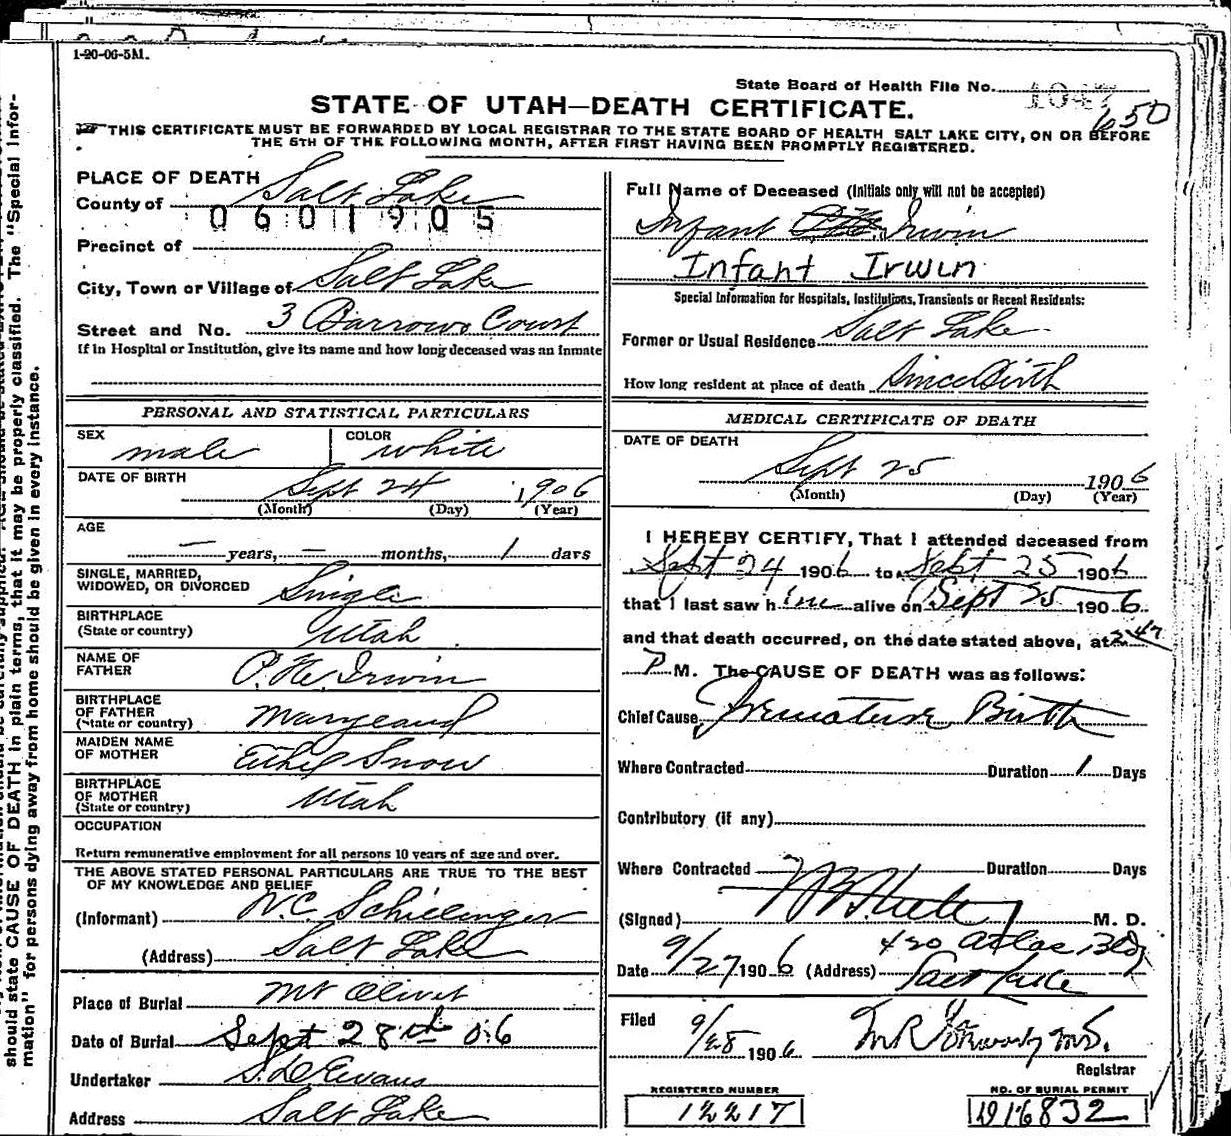 1-20-06-5M.
State Board of Health File No. 1047
650
STATE OF UTAH—DEATH CERTIFICATE.
THIS CERTIFICATE MUST BE FORWARDED BY LOCAL REGISTRAR TO THE STATE BOARD OF HEALTH SALT LAKE CITY, ON OR BEFORE
THE 5TH OF THE FOLLOWING MONTH, AFTER FIRST HAVING BEEN PROMPTLY REGISTERED.
PLACE OF DEATH
County of Salt Lake
0601905
Precinct of
City, Town or Village of Salt Lake
Street and No. 3 Barrows Court
If in Hospital or Institution, give its name and how long deceased was an inmate
PERSONAL AND STATISTICAL PARTICULARS
SEX male COLOR white
DATE OF BIRTH Sept 24 1906
(Month) (Day) (Year)
AGE
— years, — months, 1 days
SINGLE, MARRIED,
WIDOWED, OR DIVORCED Single
BIRTHPLACE
(State or country) Utah
NAME OF
FATHER P. H. Irwin
BIRTHPLACE
OF FATHER
(State or country) Maryland
MAIDEN NAME
OF MOTHER Ethel Snow
BIRTHPLACE
OF MOTHER
(State or country) Utah
OCCUPATION
Return remunerative employment for all persons 10 years of age and over.
THE ABOVE STATED PERSONAL PARTICULARS ARE TRUE TO THE BEST
OF MY KNOWLEDGE AND BELIEF
(Informant) W.C. Schillinger
(Address) Salt Lake
Place of Burial Mt Olivet
Date of Burial Sept 28th 06
Undertaker S. D. Evans
Address Salt Lake
Full Name of Deceased (Initials only will not be accepted)
Infant Irwin
Infant Irwin
Special Information for Hospitals, Institutions, Transients or Recent Residents:
Former or Usual Residence Salt Lake
How long resident at place of death Since Birth
MEDICAL CERTIFICATE OF DEATH
DATE OF DEATH
Sept 25 1906
(Month) (Day) (Year)
I HEREBY CERTIFY, That I attended deceased from
Sept 24 1906 to Sept 25 1906
that I last saw him alive on Sept 25 1906
and that death occurred, on the date stated above, at 2 47
P M. The CAUSE OF DEATH was as follows:
Chief Cause Premature Birth
Where Contracted Duration 1 Days
Contributory (if any)
Where Contracted Duration Days
(Signed) M. D.
Date 9/27 1906 (Address) 420 Atlas Bldg
Salt Lake
Filed
9/28 1906 M.D.
Registrar
REGISTERED NUMBER
12217
NO. OF BURIAL PERMIT
D16832
should state CAUSE OF DEATH in plain terms, that it may be properly classified. The "Special Infor-
mation" for persons dying away from home should be given in every instance.